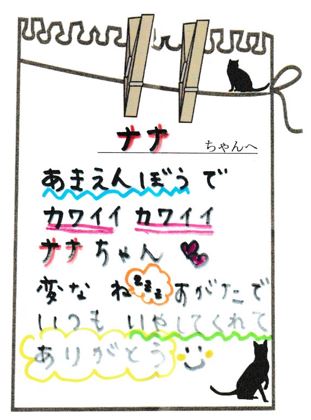 ナナ ちゃんへ
あまえんぼうで
カワイイ カワイイ
ナナちゃん
変な ねzzz すがたで
いつも いやしてくれて
ありがとう